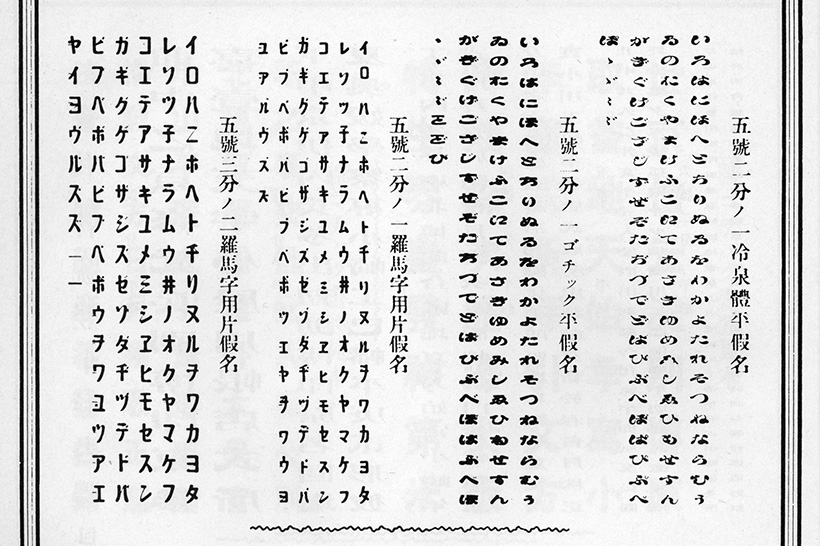 五號二分ノ一冷泉體平假名
いろはにほへとちりぬるをわかよたれそつねならむう
ゐのおくやまけふこえてあさきゆめみしゑひもせすん
がぎぐげござじずぜぞだぢづでどばびぶべぼぱぴぷぺ
ぽ
五號二分ノ一ゴチック平假名
いろはにほへとちりぬるをわかよたれそつねならむう
ゐのおくやまけふこえてあさきゆめみしゑひもせすん
がぎぐげござじずぜぞだぢづでどばびぶべぼぱぷぺぽ
五號二分ノ一羅馬字用片假名
イロハニホヘトチリヌルヲワカヨタ
レソツ子ナラムウ井ノオクヤマケフ
コエテアサキユメミシヱヒモセスン
ガギグゲゴザジズゼゾダヂヅデドバ
ビブベボパピプペポッエヤヲワウヨ
ユアルウスズ
五號三分ノ二羅馬字用片假名
イロハニホヘトチリヌルヲワカヨタ
レソツ子ナラムウ井ノオクヤマケフ
コエテアサキユメミシヱヒモセスン
ガギグゲゴザジズゼゾダヂヅデドバ
ビブベボパピプペポウヲワユツアエ
ヤイヨヴルスズ